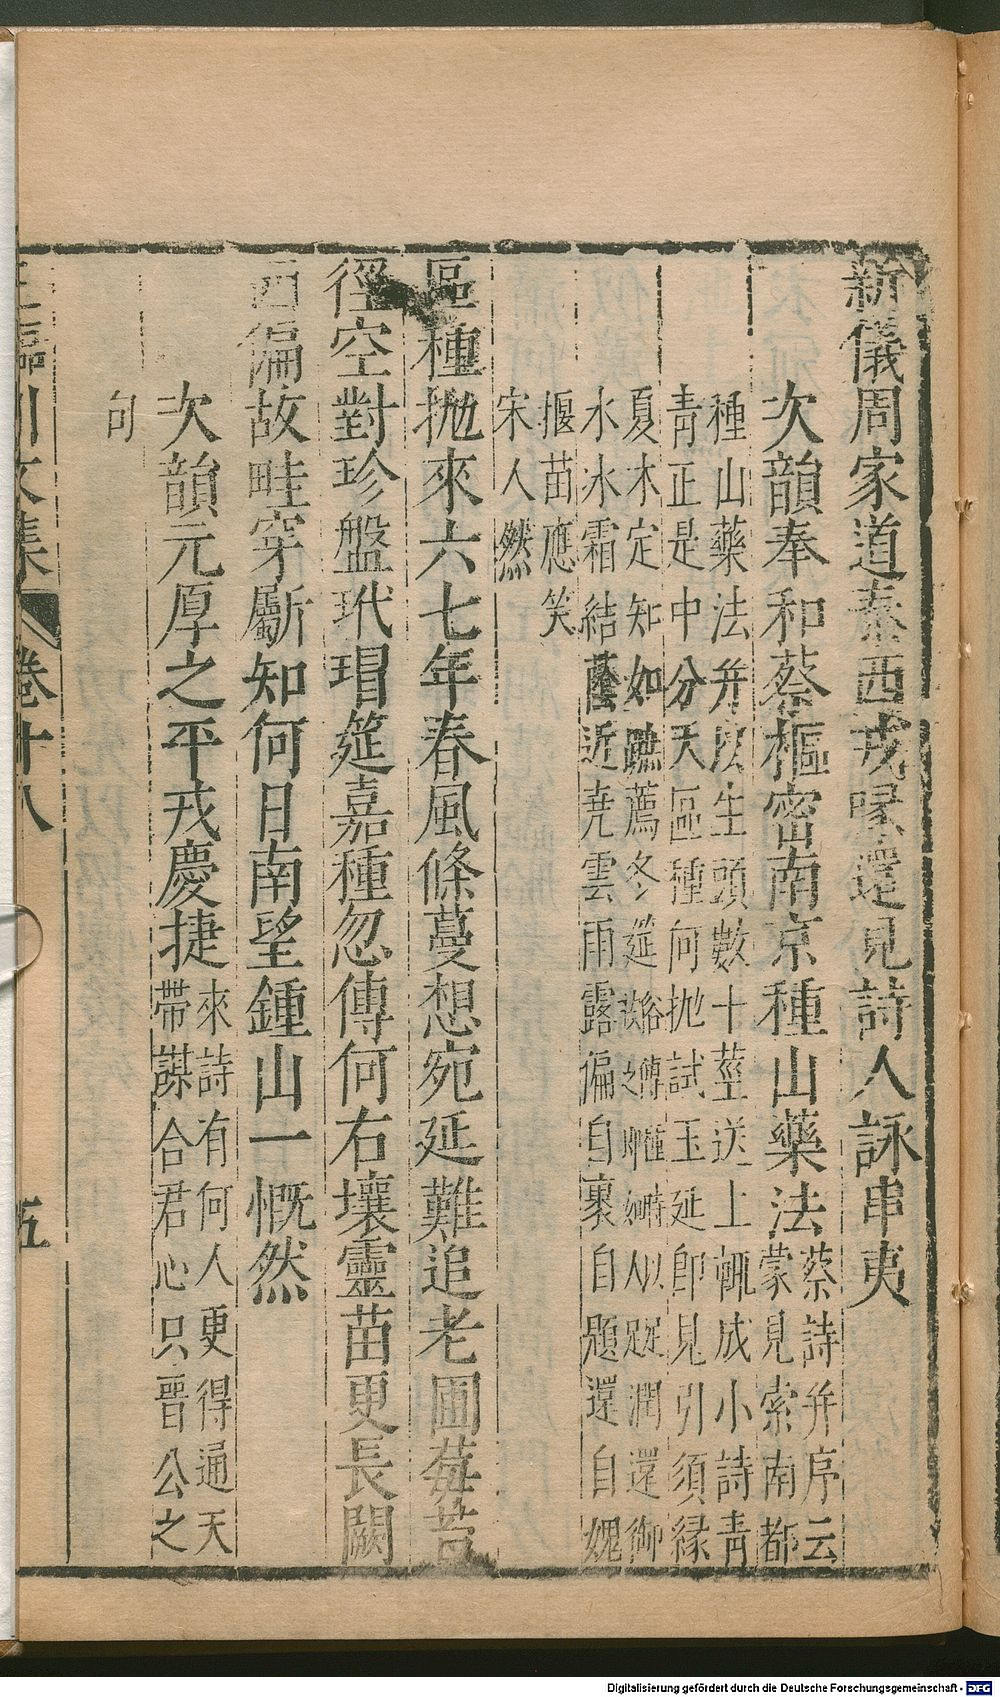 新儀周家道泰西戎喙還見詩人詠串夷
次韻奉和蔡樞密南京種山藥法
蔡詩并序云
蒙見索南都
種山藥法并以生頭數十莖送上輒成小詩青
青正是中分天區種何拋試玉延即見引須緣
夏木定知如蹠薦冬筵
人以跽潤還御
水冰霜結蔭近堯雲雨露偏自裹自題還自媿
揠苗應笑
宋人然
區種拋來六七年春風條蔓想宛延難追老圃莓苔
徑空對珍盤玳瑁筵嘉種忽傳何右壤靈苗更長闕
西偏故畦穿斸知何日南望鍾山一慨然
次韻元厚之平戎慶捷
來詩有何人更得通天
帶謀合君心只晉公之
句
臨川文集 卷十八 五
Digitalisierung gefördert durch die Deutsche Forschungsgemeinschaft - DFG